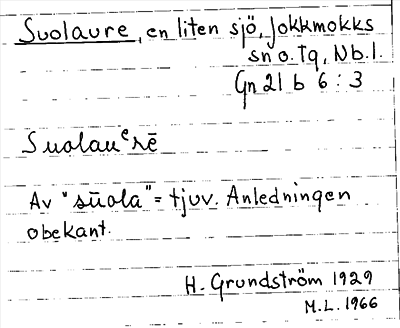 Suolaure, en liten sjö, Jokkmokks
sn o. tg, Nb.l.
Gn 21 b 6 : 3
Suolauᵉrē
Av "sūola" = tjuv. Anledningen
obekant.
H. Grundström 1929
M.L. 1966